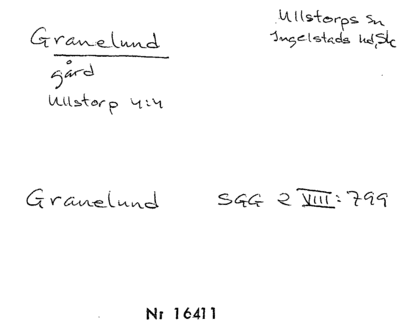 Granelund
gård
Ullstorp 4:4
Ullstorps Sn
Ingelstads hd, Sk
Granelund SGG 2 VIII: 799
Nr 16411